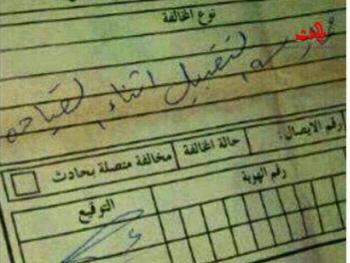 نوع المخالفة
ممارسة التقبيل اثناء القياده
رقم الايصال:
حالة المخالفة
مخالفة متصلة بحادث
رقم الهوية
التوقيع